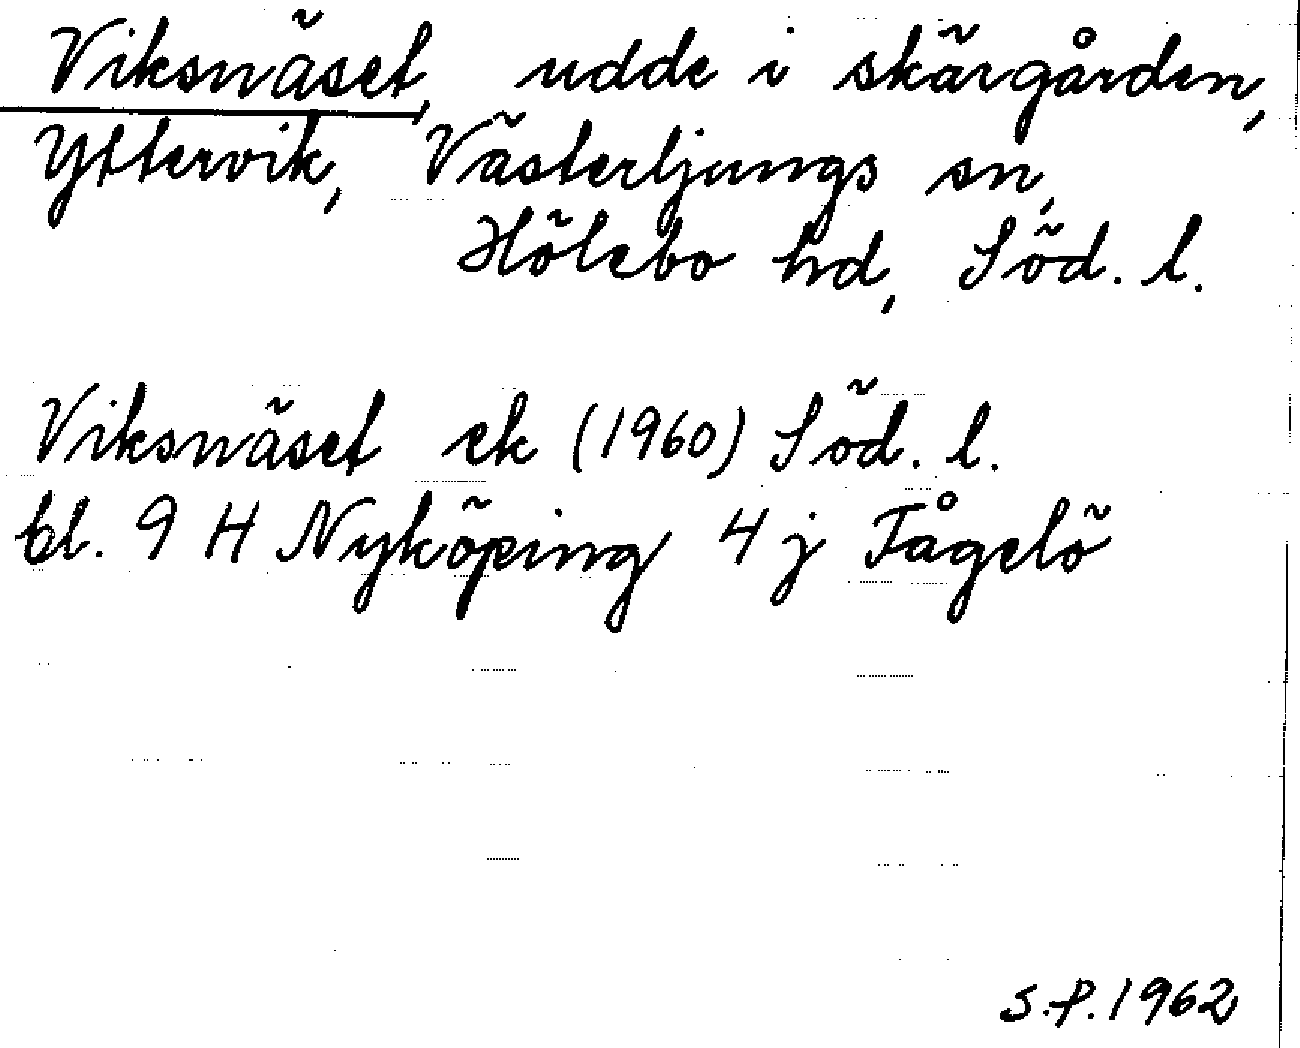 Viksnäset, udde i skärgården,
Yttervik, Västerljungs sn,
Hölebo hd, Söd. l.
Viksnäset ek (1960) Söd. l.
bl. 9 H Nyköping 4 j Fågelö
S.P. 1962